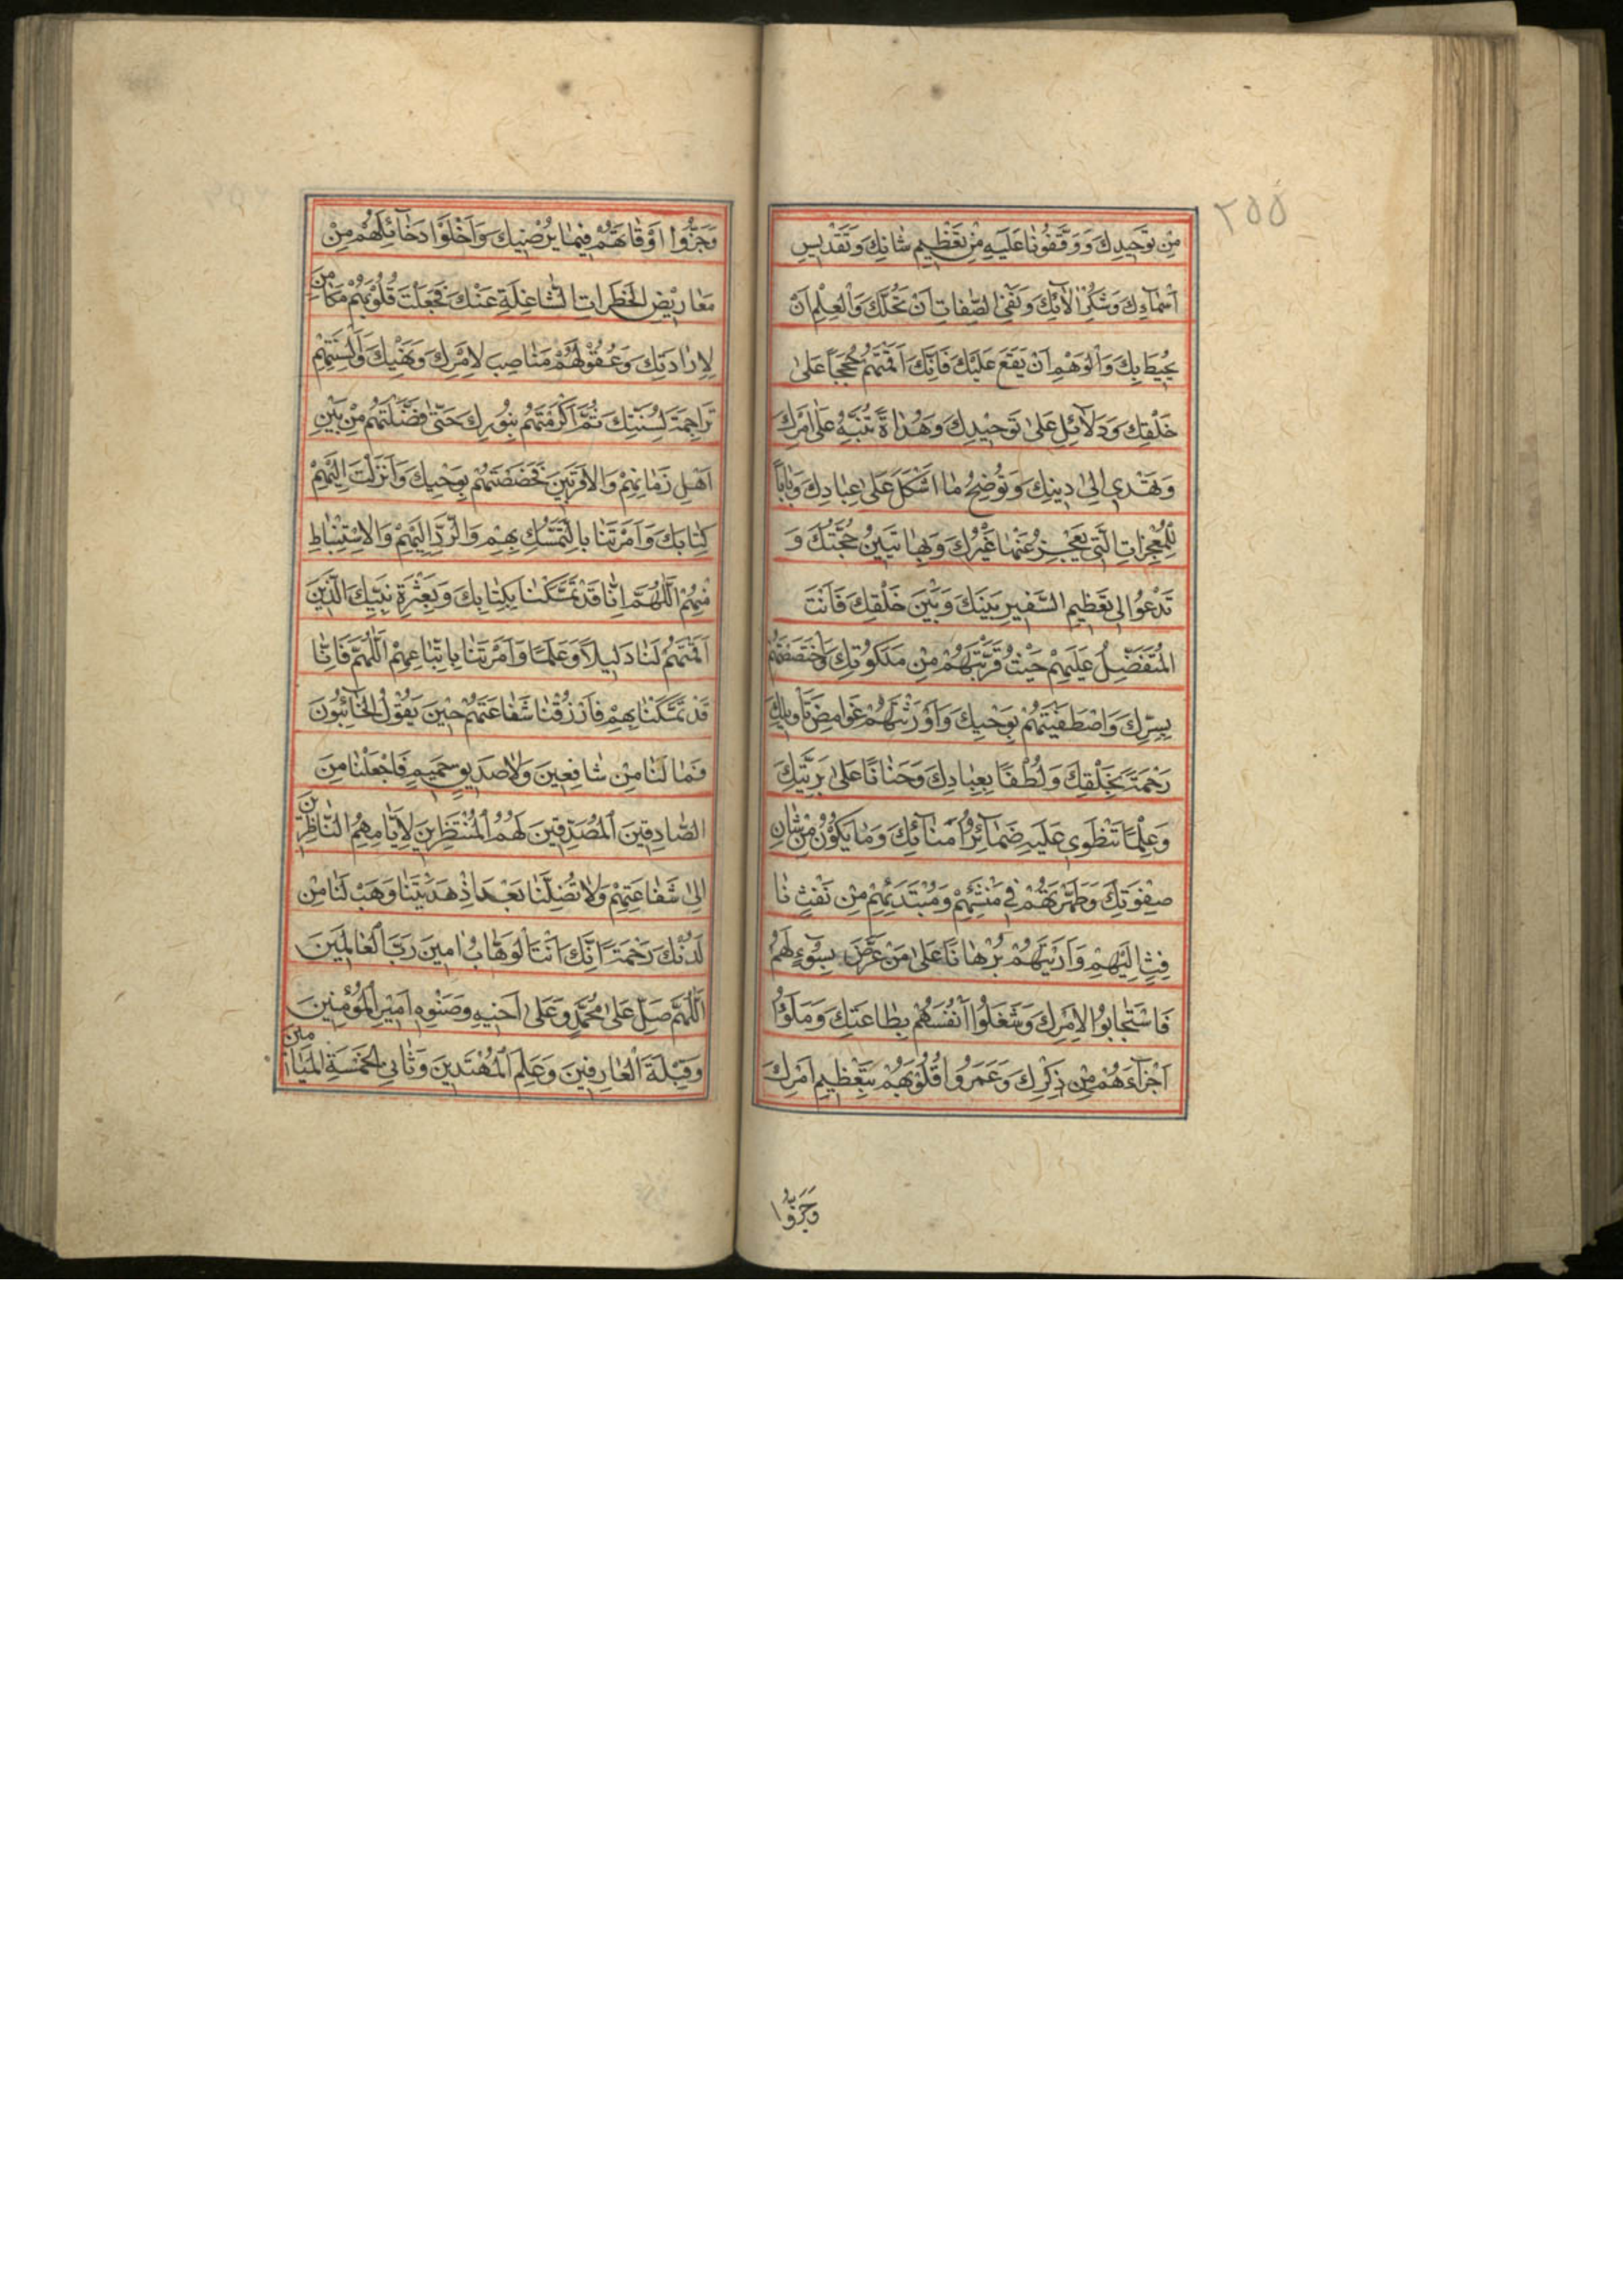 ٢٥٥
مِنْ تَوْحِيدِكَ وَ وَقَّفُونَا عَلَيْهِ مِنْ تَعْظِيمِ شَانِكَ وَتَقْدِيسِ
اَسْمَاءِكَ وَشُكْرِ الَآئِكَ وَنَفْىِ الصِّفَاتِ اَنْ تَحُلَّكَ وَالْعِلْمِ اَنْ
يُحِيطَ بِكَ وَالْوَهْمِ اَنْ يَقَعَ عَلَيْكَ فَاِنَّكَ اَقَمْتَهُمْ حُجَجًا عَلىٰ
خَلْقِكَ وَدَلَآئِلَ عَلىٰ تَوْحِيْدِكَ وَهُدَاةً تُنَبِّهُ عَلىٰ اَمْرِكَ
وَتَهْدِى اِلىٰ دِينِكَ وَتُوضِحُ مَا اَشْكَلَ عَلىٰ عِبَادِكَ وَبَابًا
لِلْمُعْجِزَاتِ الَّتِى يَعْجِزُ عَنْهَا غَيْرُكَ وَبِهَا تَبِينُ حُجَّتُكَ وَ
تَدْعُوْا اِلى تَعْظِيمِ السَّفِيرِ بَيْنَكَ وَبَيْنَ خَلْقِكَ فَاَنْتَ
الْمُتَفَضِّلُ عَلَيْهِمْ حَيْثُ قَرَّبْتَهُمْ مِنْ مَلَكُوتِكَ وَاخْتَصَصْتَهُمْ
بِسِرِّكَ وَاصْطَفَيْتَهُمْ بِوَحْيِكَ وَاَوْرَثْتَهُمْ غَوَامِضَ تَاْوِيلِكَ
رَحْمَةً بِخَلْقِكَ وَلُطْفًا بِعِبَادِكَ وَحَنَانًا عَلىٰ بَرِيَّتِكَ
وَعِلْمًا بِمَا تَنْطَوِى عَلَيْهِ ضَمَآئِرُ اُمَنَآئِكَ وَمَا يَكُوْنُ مِنْ شَانِ
صِفْوَتِكَ وَطَهَّرْتَهُمْ فِى مَنْشَئِهِمْ وَمُبْتَدَئِهِمْ مِنْ نَفْثِ نَا
فِثٍ اِلَيْهِمْ وَاَرَيْتَهُمْ بُرْهَانًا عَلىٰ مَنْ عَرَّضَ بِسُوْءٍ لَهُمْ
فَاسْتَجَابُوْا لِاَمْرِكَ وَشَغَلُوْا اَنْفُسَهُمْ بِطَاعَتِكَ وَمَلَؤُا
اَجْزَآءَهُمْ مِنْ ذِكْرِكَ وَعَمَرُوا قُلُوْبَهُمْ بِتَعْظِيمِ اَمْرِكَ
وَجَزَّؤُا
وَجَزَّؤُا اَوْقَاتَهُمْ فِيمَا يُرْضِيكَ وَاَخْلَوْا دَخَآئِلَهُمْ مِنْ
مَعَارِيْضِ الْخَطَرَاتِ الشَّاغِلَةِ عَنْكَ فَجَعَلْتَ قُلُوْبَهُمْ مَكَامِنَ
لِاِرَادَتِكَ وَعُقُوْلَهُمْ مَنَاصِبَ لِاَمْرِكَ وَنَهْيِكَ وَاَلْسِنَتَهُمْ
تَرَاجِمَةً لِسُنَّتِكَ ثُمَّ اَكْرَمْتَهُمْ بِنُورِكَ حَتّىٰ فَضَّلْتَهُمْ مِنْ بَيْنِ
اَهْلِ زَمَانِهِمْ وَالْاَقْرَبِيْنَ فَخَصَصْتَهُمْ بِوَحْيِكَ وَاَنْزَلْتَ اِلَيْهِمْ
كِتَابَكَ وَاَمَرْتَنَا بِالتَّمَسُّكِ بِهِمْ وَالرَّدِّ اِلَيْهِمْ وَالْاِسْتِنْبَاطِ
مِنْهُمْ اَللّٰهُمَّ اِنَّا قَدْ تَمَسَّكْنَا بِكِتَابِكَ وَبِعِتْرَةِ نَبِيِّكَ الَّذِينَ
اَقَمْتَهُمْ لَنَا دَلِيلًا وَعَلَمًا وَاَمَرْتَنَا بِاِتِّبَاعِهِمْ اَللّٰهُمَّ فَاِنَّا
قَدْ تَمَسَّكْنَا بِهِمْ فَارْزُقْنَا شَفَاعَتَهُمْ حِيْنَ يَقُوْلُ الْخَآئِبُونَ
فَمَا لَنَا مِنْ شَافِعِينَ وَلَا صَدِيقٍ حَمِيمٍ فَاجْعَلْنَا مِنَ
الصَّادِقِينَ الْمُصَدِّقِينَ لَهُمُ الْمُنْتَظِرِينَ لِاَيَّامِهِمُ النَّاظِرِينَ
اِلىٰ شَفَاعَتِهِمْ وَلَا تُضِلَّنَا بَعْدَ اِذْ هَدَيْتَنَا وَهَبْ لَنَا مِنْ
لَدُنْكَ رَحْمَةً اِنَّكَ اَنْتَ الْوَهَّابُ امِينَ رَبَّ الْعَالَمِينَ
اَللّٰهُمَّ صَلِّ عَلىٰ مُحَمَّدٍ وَعَلىٰ اَخِيهِ وَصِنْوِهِ اَمِيْرِ الْمُؤْمِنِينَ
وَقِبْلَةَ الْعَارِفِينَ وَعَلَمِ الْمُهْتَدِينَ وَثَانِى الْخَمْسَةِ الْمَيَامِينَ